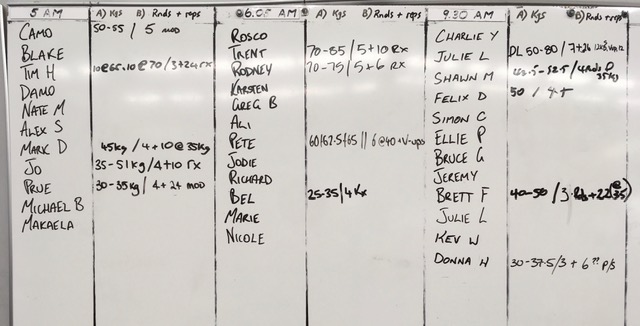 5 AM A) Kgs B) Rnds + reps
CAMO 50-55 / 5 MOD
BLAKE
TIM H 10@65.10@70/3+24 rx
DAMO
NATE M
ALEX S
MARK D 45kg / 4+10@35kg
JO 35-51kg / 4+10 rx
PRUE 30-35kg / 4+24 MOD
MICHAEL B
MAKAELA
6.05 AM A) Kgs B) Rnds + reps
ROSCO
TRENT 70-85 / 5+10 Rx
RODNEY 70-75 / 5+6 Rx
KARSTEN
GREG B
ALI
PETE 60/62.5/65 || 6@40+V-ups
JODIE
RICHARD
BEL 25-35/4 Rx
MARIE
NICOLE
9.30 AM A) Kgs B) Rnds + reps
CHARLIE Y
JULIE L DL 50-80 / 7+26
SHAWN M
FELIX D 50 /
SIMON C
ELLIE P
BRUCE G
JEREMY
BRETT F 40-50 / 3 Rds+22 (@35)
JULIE L
KEV W
DONNA W 30-37.5/3 + 6 ?? P/S